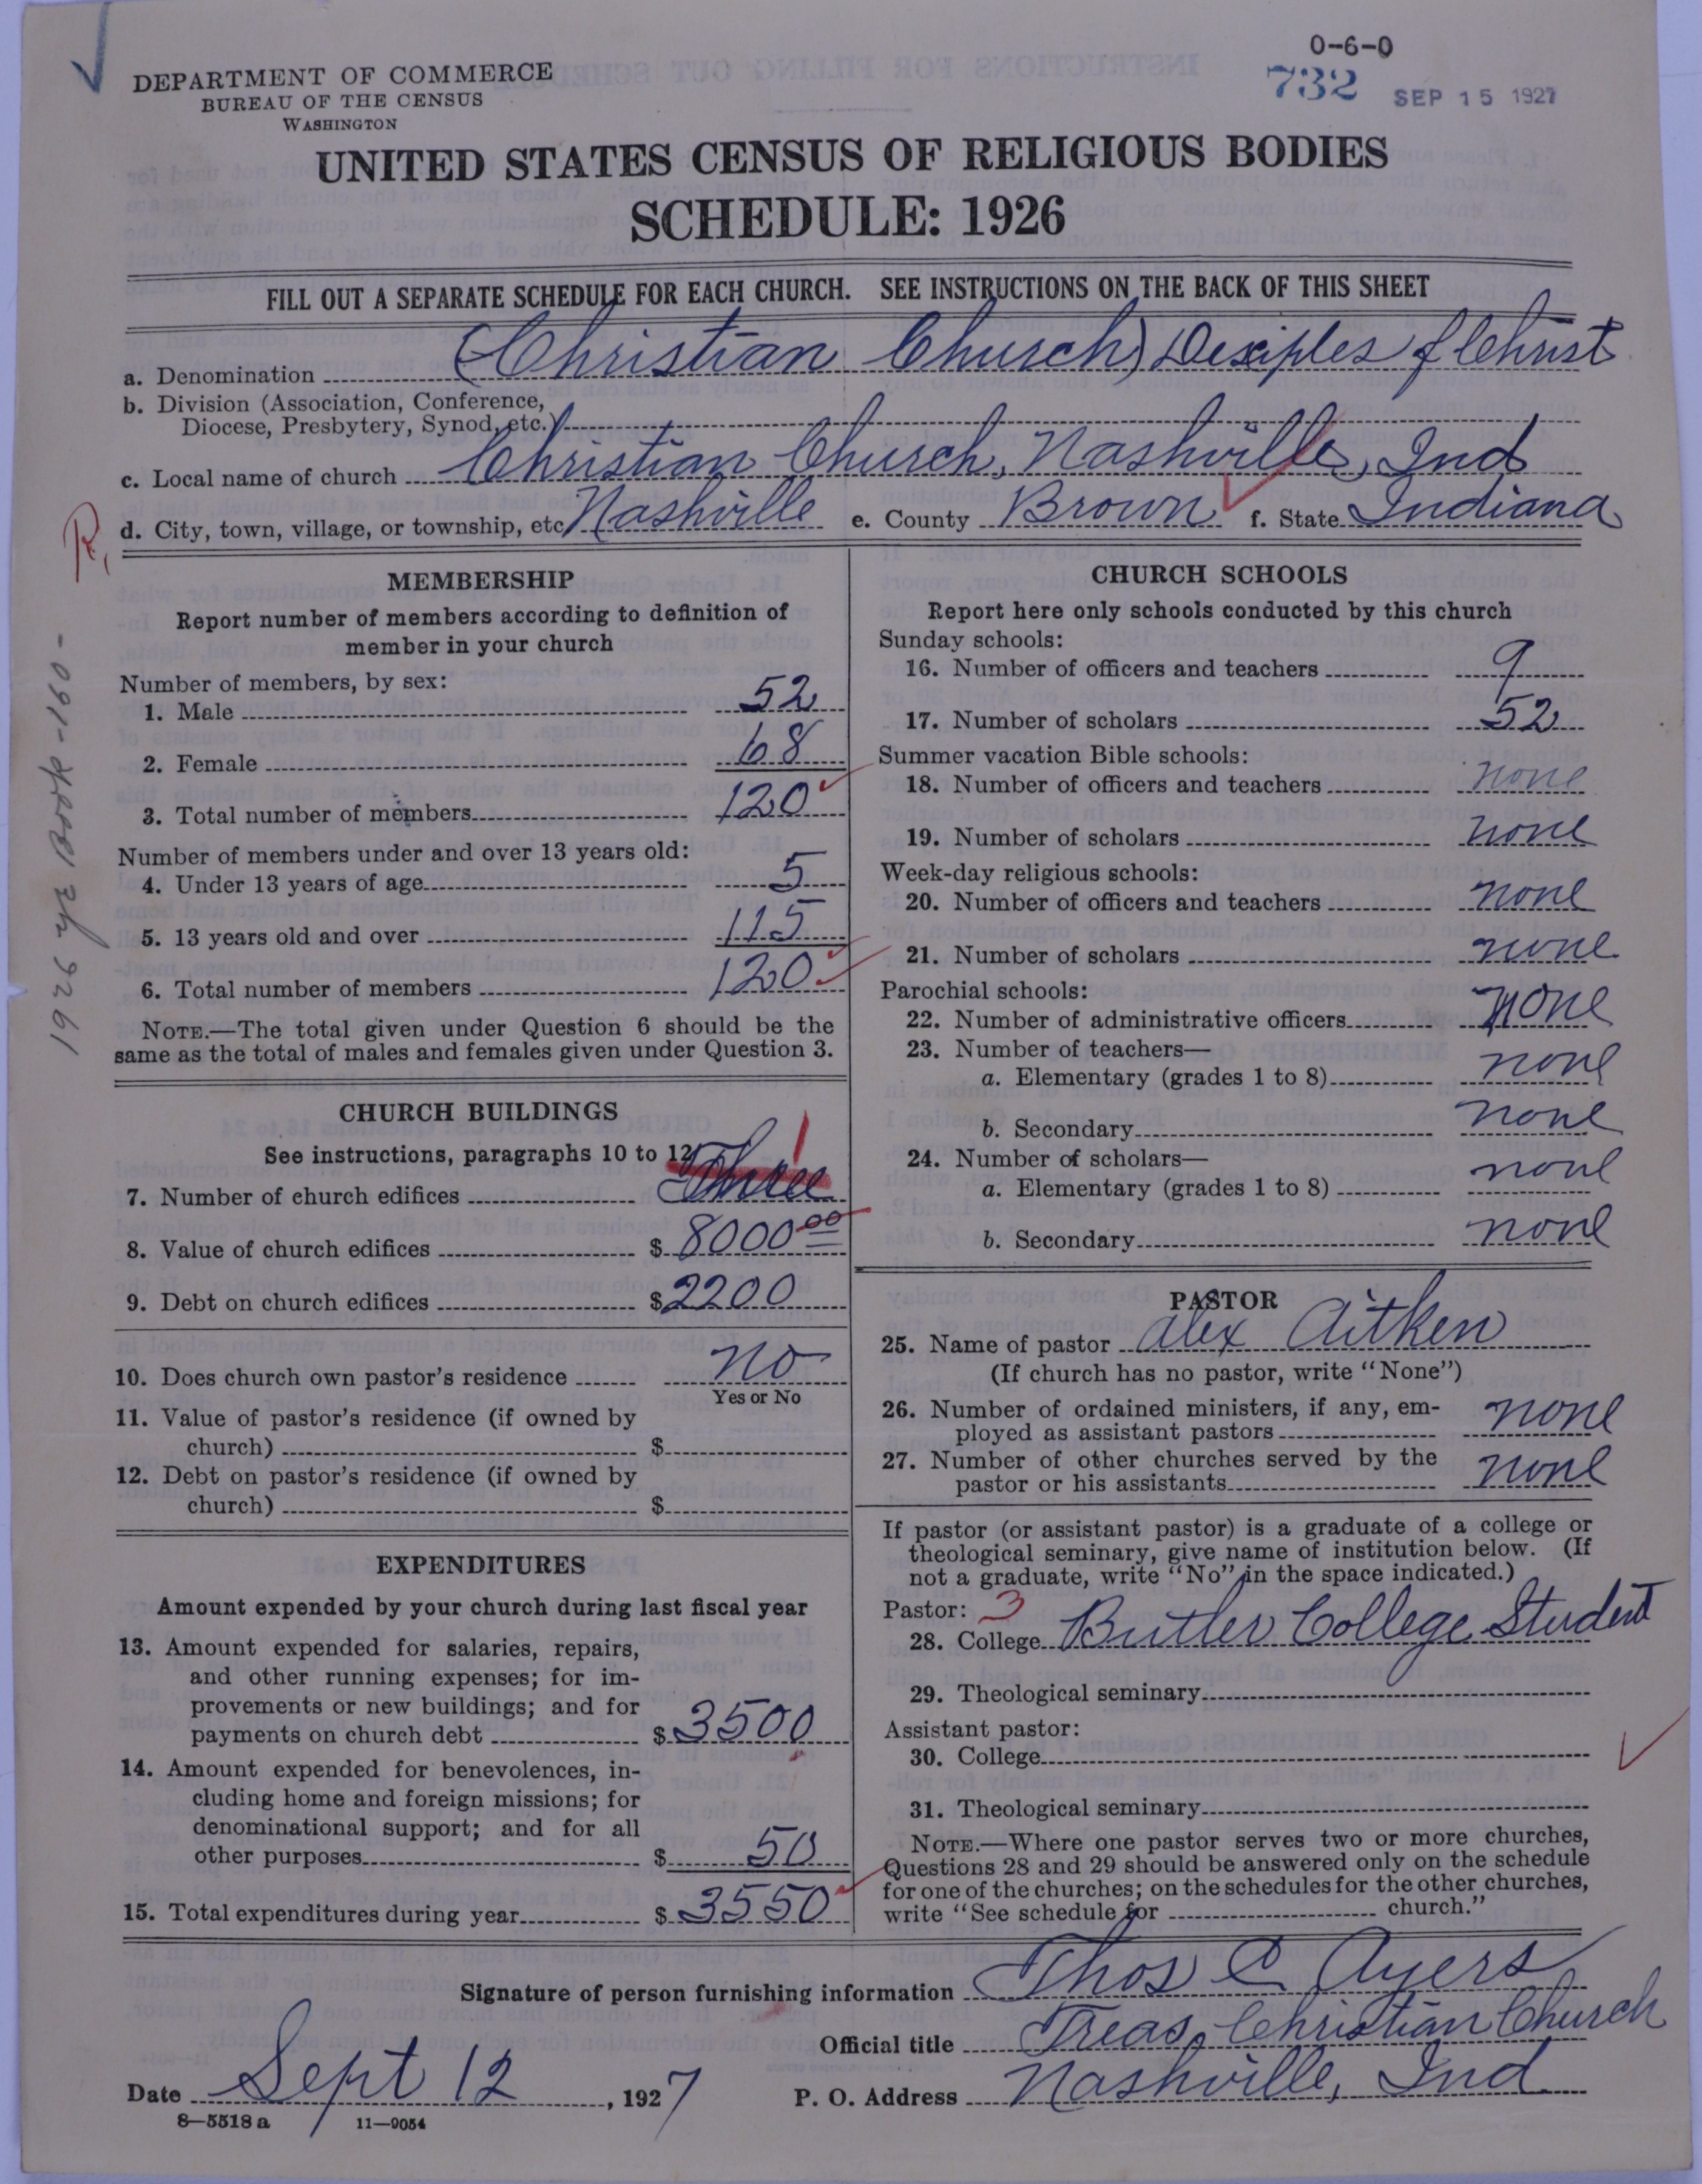 0-6-0
732 SEP 15 1927
DEPARTMENT OF COMMERCE
BUREAU OF THE CENSUS
WASHINGTON
UNITED STATES CENSUS OF RELIGIOUS BODIES
SCHEDULE: 1926
FILL OUT A SEPARATE SCHEDULE FOR EACH CHURCH. SEE INSTRUCTIONS ON THE BACK OF THIS SHEET
a. Denomination (Christian Church) Disciples of Christ
b. Division (Association, Conference,
Diocese, Presbytery, Synod, etc.)
c. Local name of church Christian Church, Nashville, Ind
d. City, town, village, or township, etc. Nashville e. County Brown f. State Indiana
R,
1926 yr Book-160-
MEMBERSHIP
Report number of members according to definition of
member in your church
Number of members, by sex:
1. Male 52
2. Female 68
3. Total number of members 120
Number of members under and over 13 years old:
4. Under 13 years of age 5
5. 13 years old and over 115
6. Total number of members 120
NOTE.—The total given under Question 6 should be the
same as the total of males and females given under Question 3.
CHURCH BUILDINGS
See instructions, paragraphs 10 to 12
7. Number of church edifices Three 1
8. Value of church edifices $ 8000 00
9. Debt on church edifices $ 2200
10. Does church own pastor's residence no
Yes or No
11. Value of pastor's residence (if owned by
church) $
12. Debt on pastor's residence (if owned by
church) $
EXPENDITURES
Amount expended by your church during last fiscal year
13. Amount expended for salaries, repairs,
and other running expenses; for im-
provements or new buildings; and for
payments on church debt $ 3500
14. Amount expended for benevolences, in-
cluding home and foreign missions; for
denominational support; and for all
other purposes $ 50
15. Total expenditures during year $ 3550
CHURCH SCHOOLS
Report here only schools conducted by this church
Sunday schools:
16. Number of officers and teachers 9
17. Number of scholars 52
Summer vacation Bible schools:
18. Number of officers and teachers none
19. Number of scholars none
Week-day religious schools:
20. Number of officers and teachers none
21. Number of scholars none
Parochial schools:
22. Number of administrative officers none
23. Number of teachers—
a. Elementary (grades 1 to 8) none
b. Secondary none
24. Number of scholars—
a. Elementary (grades 1 to 8) none
b. Secondary none
PASTOR
25. Name of pastor Alex Aitken
(If church has no pastor, write "None")
26. Number of ordained ministers, if any, em-
ployed as assistant pastors none
27. Number of other churches served by the
pastor or his assistants none
If pastor (or assistant pastor) is a graduate of a college or
theological seminary, give name of institution below. (If
not a graduate, write "No" in the space indicated.)
Pastor: 3
28. College Butler College Student
29. Theological seminary
Assistant pastor:
30. College
31. Theological seminary
NOTE.—Where one pastor serves two or more churches,
Questions 28 and 29 should be answered only on the schedule
for one of the churches; on the schedules for the other churches,
write "See schedule for church."
Signature of person furnishing information Thos C Ayers
Official title Treas, Christian Church
Date Sept 12, 1927 P. O. Address Nashville, Ind
8—5518 a 11—9054